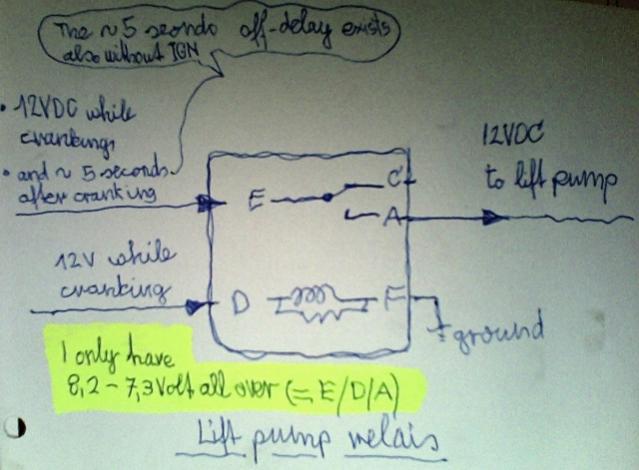 The ~ 5 seconds off-delay exists
also without IGN
• 12VDC while
cranking,
• and ~ 5 seconds
after cranking
12VDC
to lift pump
E
C
A
12V while
cranking
D
F
ground
I only have
8,2 - 7,3 Volt all over (= E/D/A)
Lift pump relais